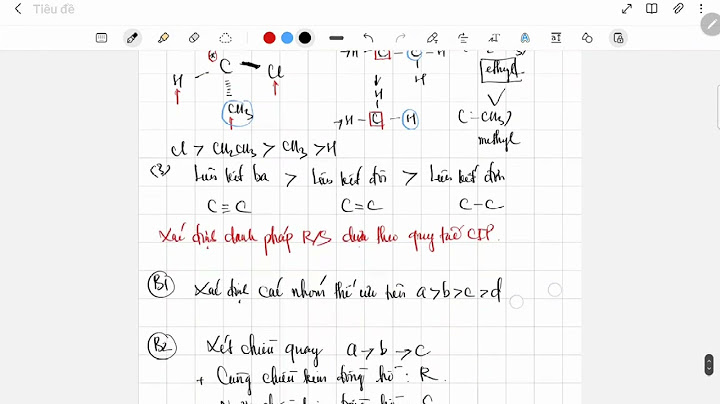 Tiêu đề
C – C – H
H C Cl
H
ethyl
H
CH3
→H – C – H
C – CH3
methyl
Cl > CH2CH3 > CH3 > H
(3) Liên kết ba > Liên kết đôi > Liên kết đơn
C≡C C=C C–C
Xác định danh pháp R/S dựa theo quy tắc CIP.
B1 Xác định các nhóm thế ưu tiên a>b>c>d
B2 Xét chiều quay a→b→c
+ Cùng chiều kim đồng hồ: R